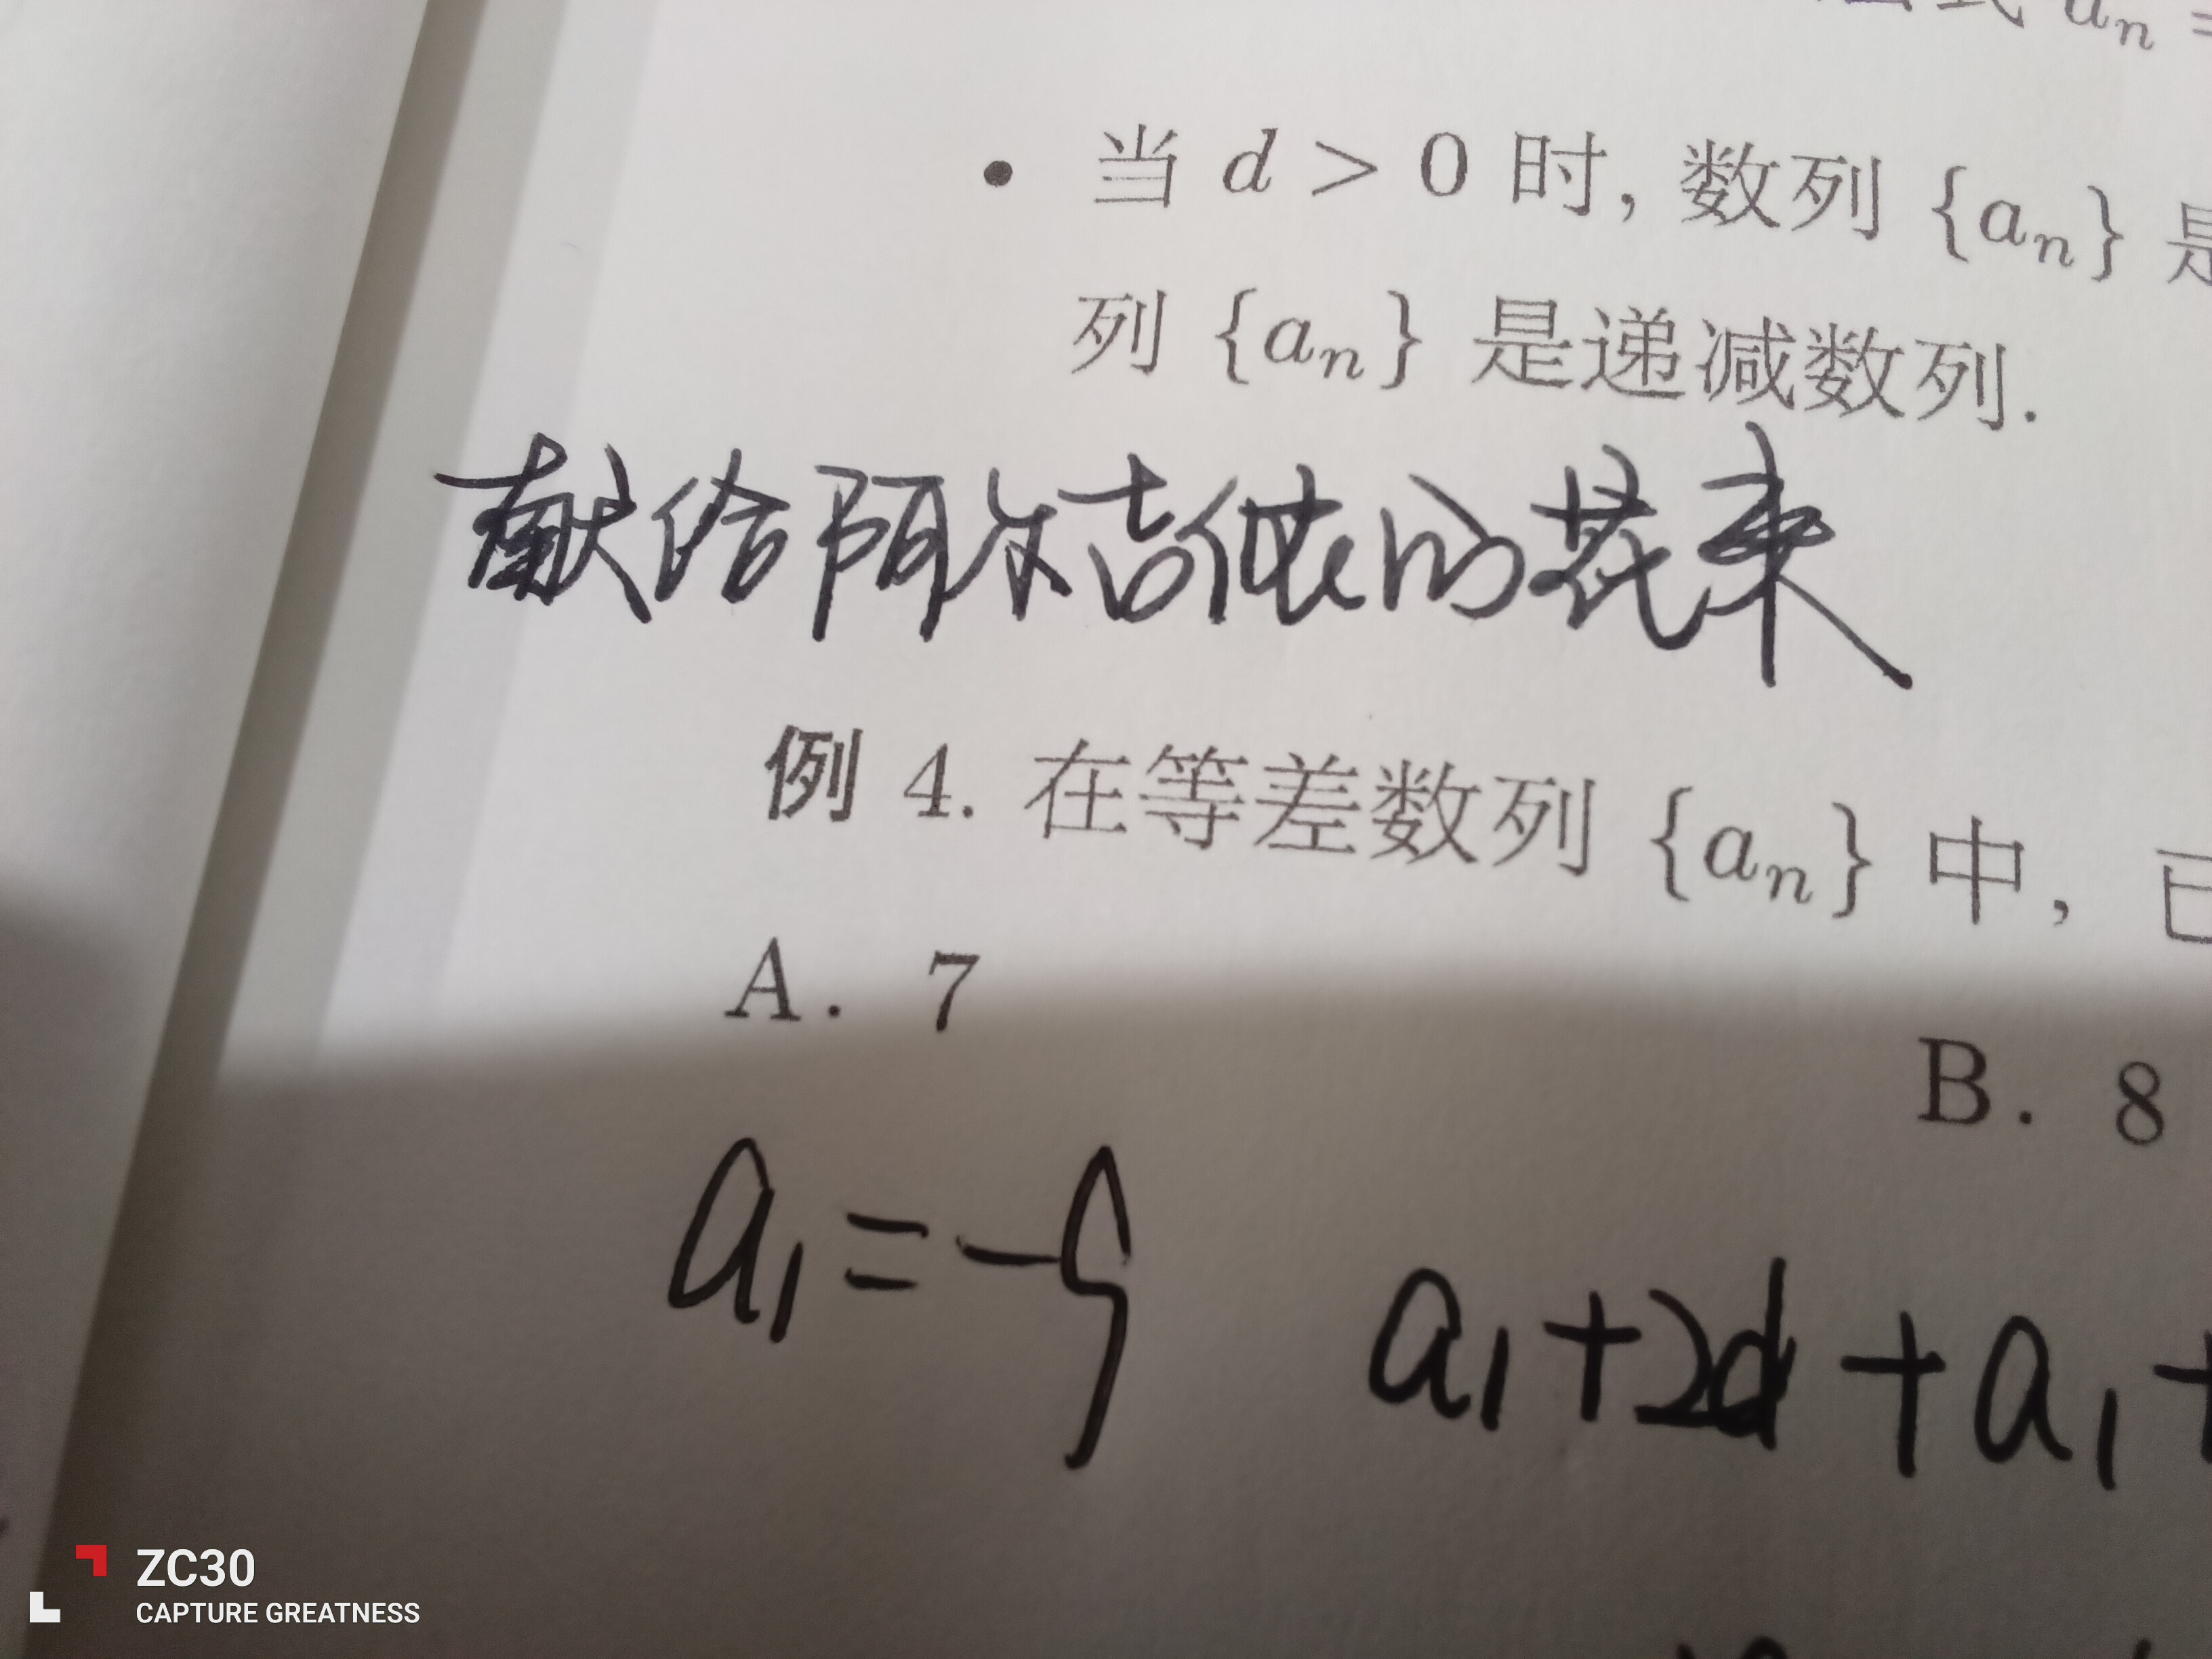 式 aₙ =
• 当 d > 0 时, 数列 {aₙ} 是
列 {aₙ} 是递减数列.
献给阿尔吉侬的花束
例 4. 在等差数列 {aₙ} 中, 已
A. 7
B. 8
a₁ = -9
a₁ + 2d + a₁ +
ZC30
CAPTURE GREATNESS